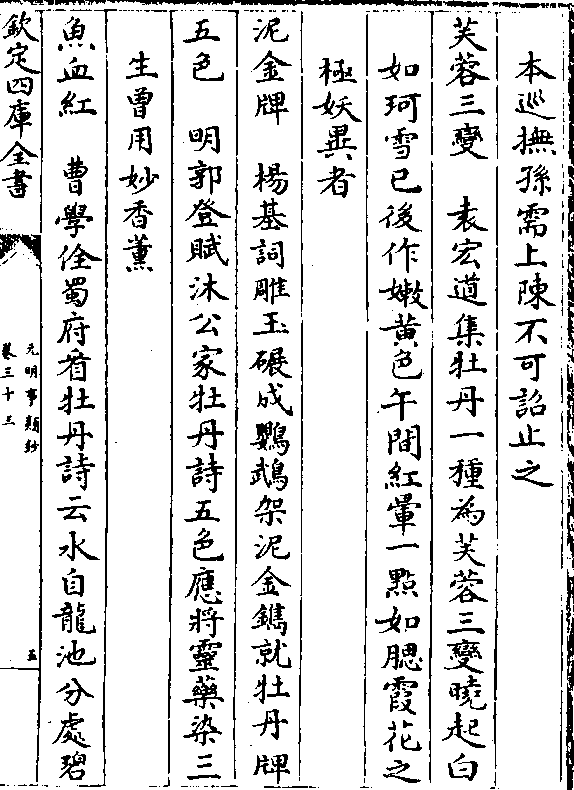 本巡撫孫需上陳不可詔止之
芙蓉三變　袁宏道集牡丹一種為芙蓉三變曉起白
如珂雪已後作嫩黄色午間紅暈一點如腮霞花之
極妖異者
泥金牌　楊基詞雕玉碾成鸚鵡架泥金鐫就牡丹牌
五色　明郭登賦沐公家牡丹詩五色應將靈藥染三
生曾用妙香薰
魚血紅　曹學佺蜀府看牡丹詩云水自龍池分處碧
欽定四庫全書
元明事類鈔
卷三十三
五